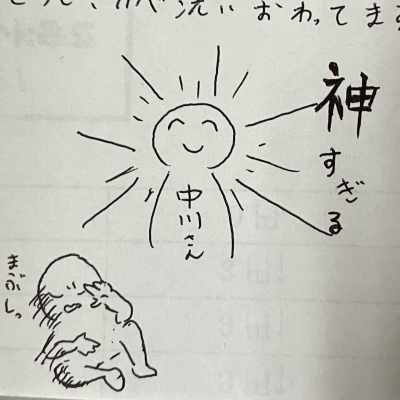 洗いおわってます
神すぎる
中川さん
まぶしっ